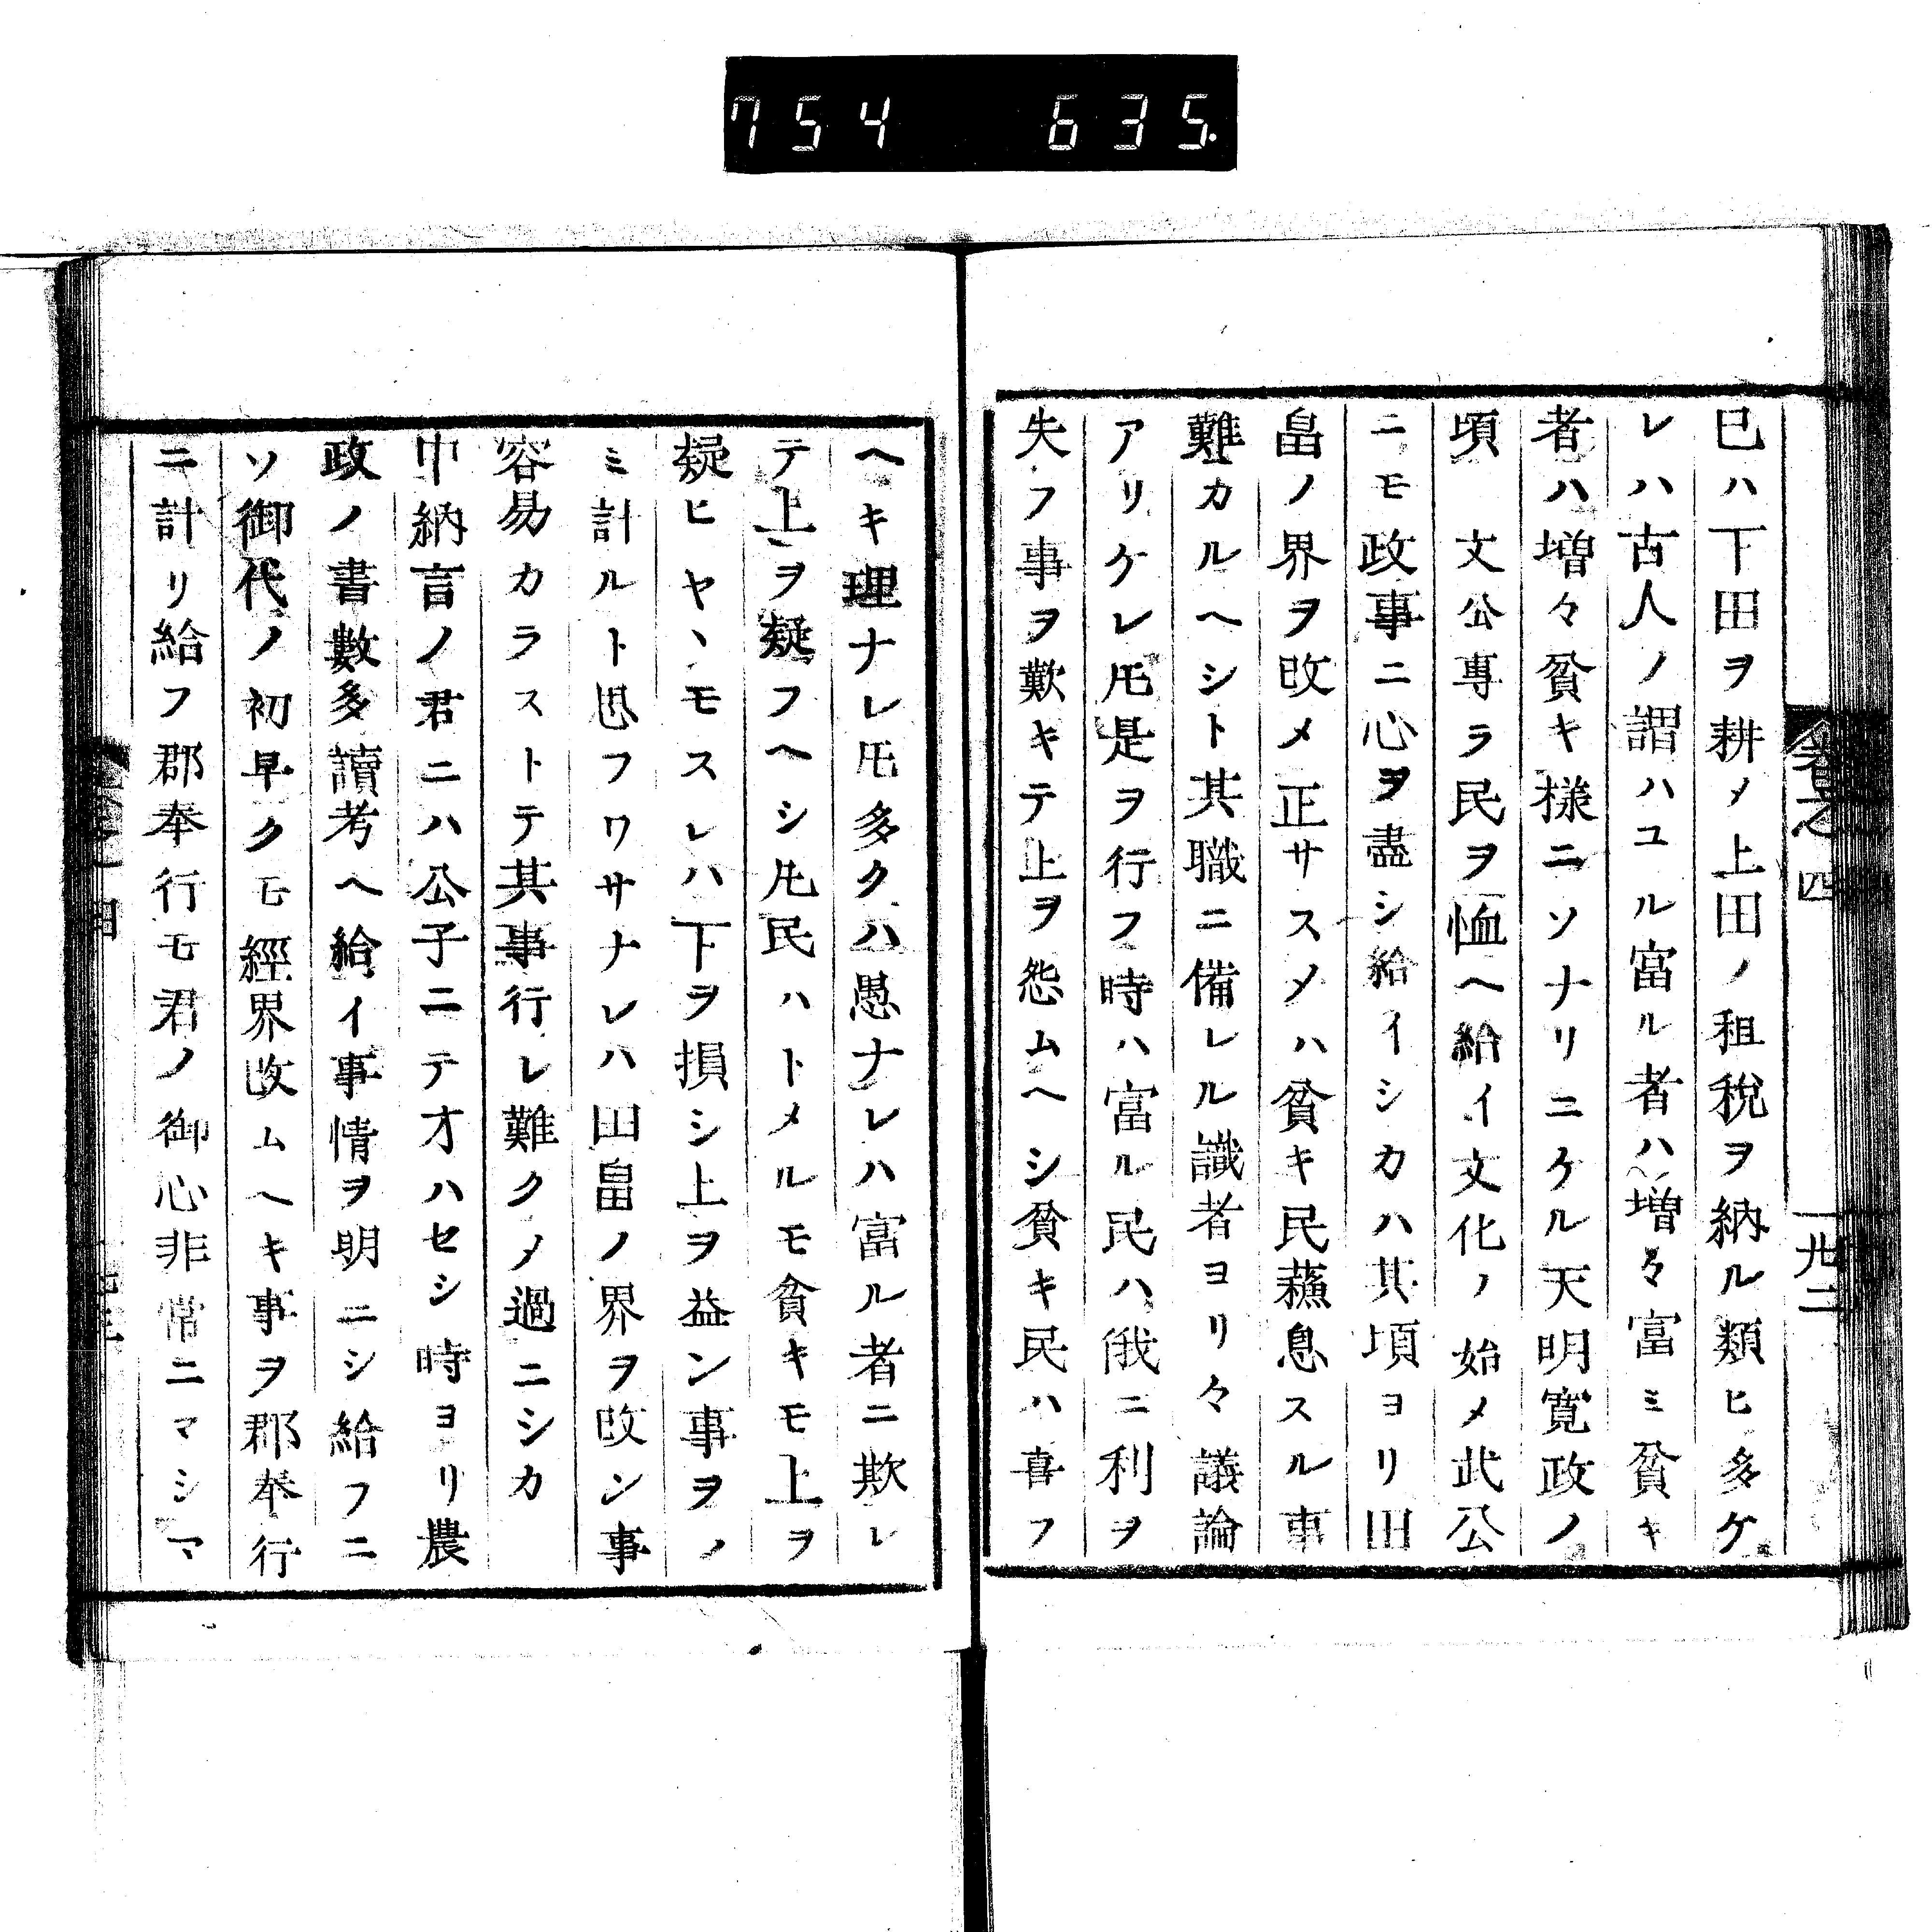 754 635.
巻之四 卅二
已ハ下田ヲ耕メ上田ノ租稅ヲ納ル類ヒ多ケ
レハ古人ノ謂ハユル富ル者ハ増々富ミ貧キ
者ハ増々貧キ様ニソナリニケル天明寛政ノ
頃 文公專ラ民ヲ恤ヘ給イ文化ノ始メ武公
ニモ政事ニ心ヲ盡シ給イシカハ其頃ヨリ田
畠ノ界ヲ改メ正サスメハ貧キ民蘓息スル事
難カルヘシト其職ニ備レル識者ヨリ々議論
アリケレ𪜈是ヲ行フ時ハ富ル民ハ俄ニ利ヲ
失フ事ヲ歎キテ上ヲ怨ムヘシ貧キ民ハ喜フ
ヘキ理ナレ𪜈多クハ愚ナレハ富ル者ニ欺レ
テ上ヲ疑フヘシ凡民ハトメルモ貧キモ上ヲ
疑ヒヤヽモスレハ下ヲ損シ上ヲ益ン事ヲノ
ミ計ルト思フワサナレハ田畠ノ界ヲ改ン事
容易カラストテ其事行レ難クメ過ニシカ
中納言ノ君ニハ公子ニテオハセシ時ヨリ農
政ノ書數多讀考ヘ給イ事情ヲ明ニシ給フニ
ソ御代ノ初早クモ經界改ムヘキ事ヲ郡奉行
ニ計リ給フ郡奉行モ君ノ御心非常ニマシマ